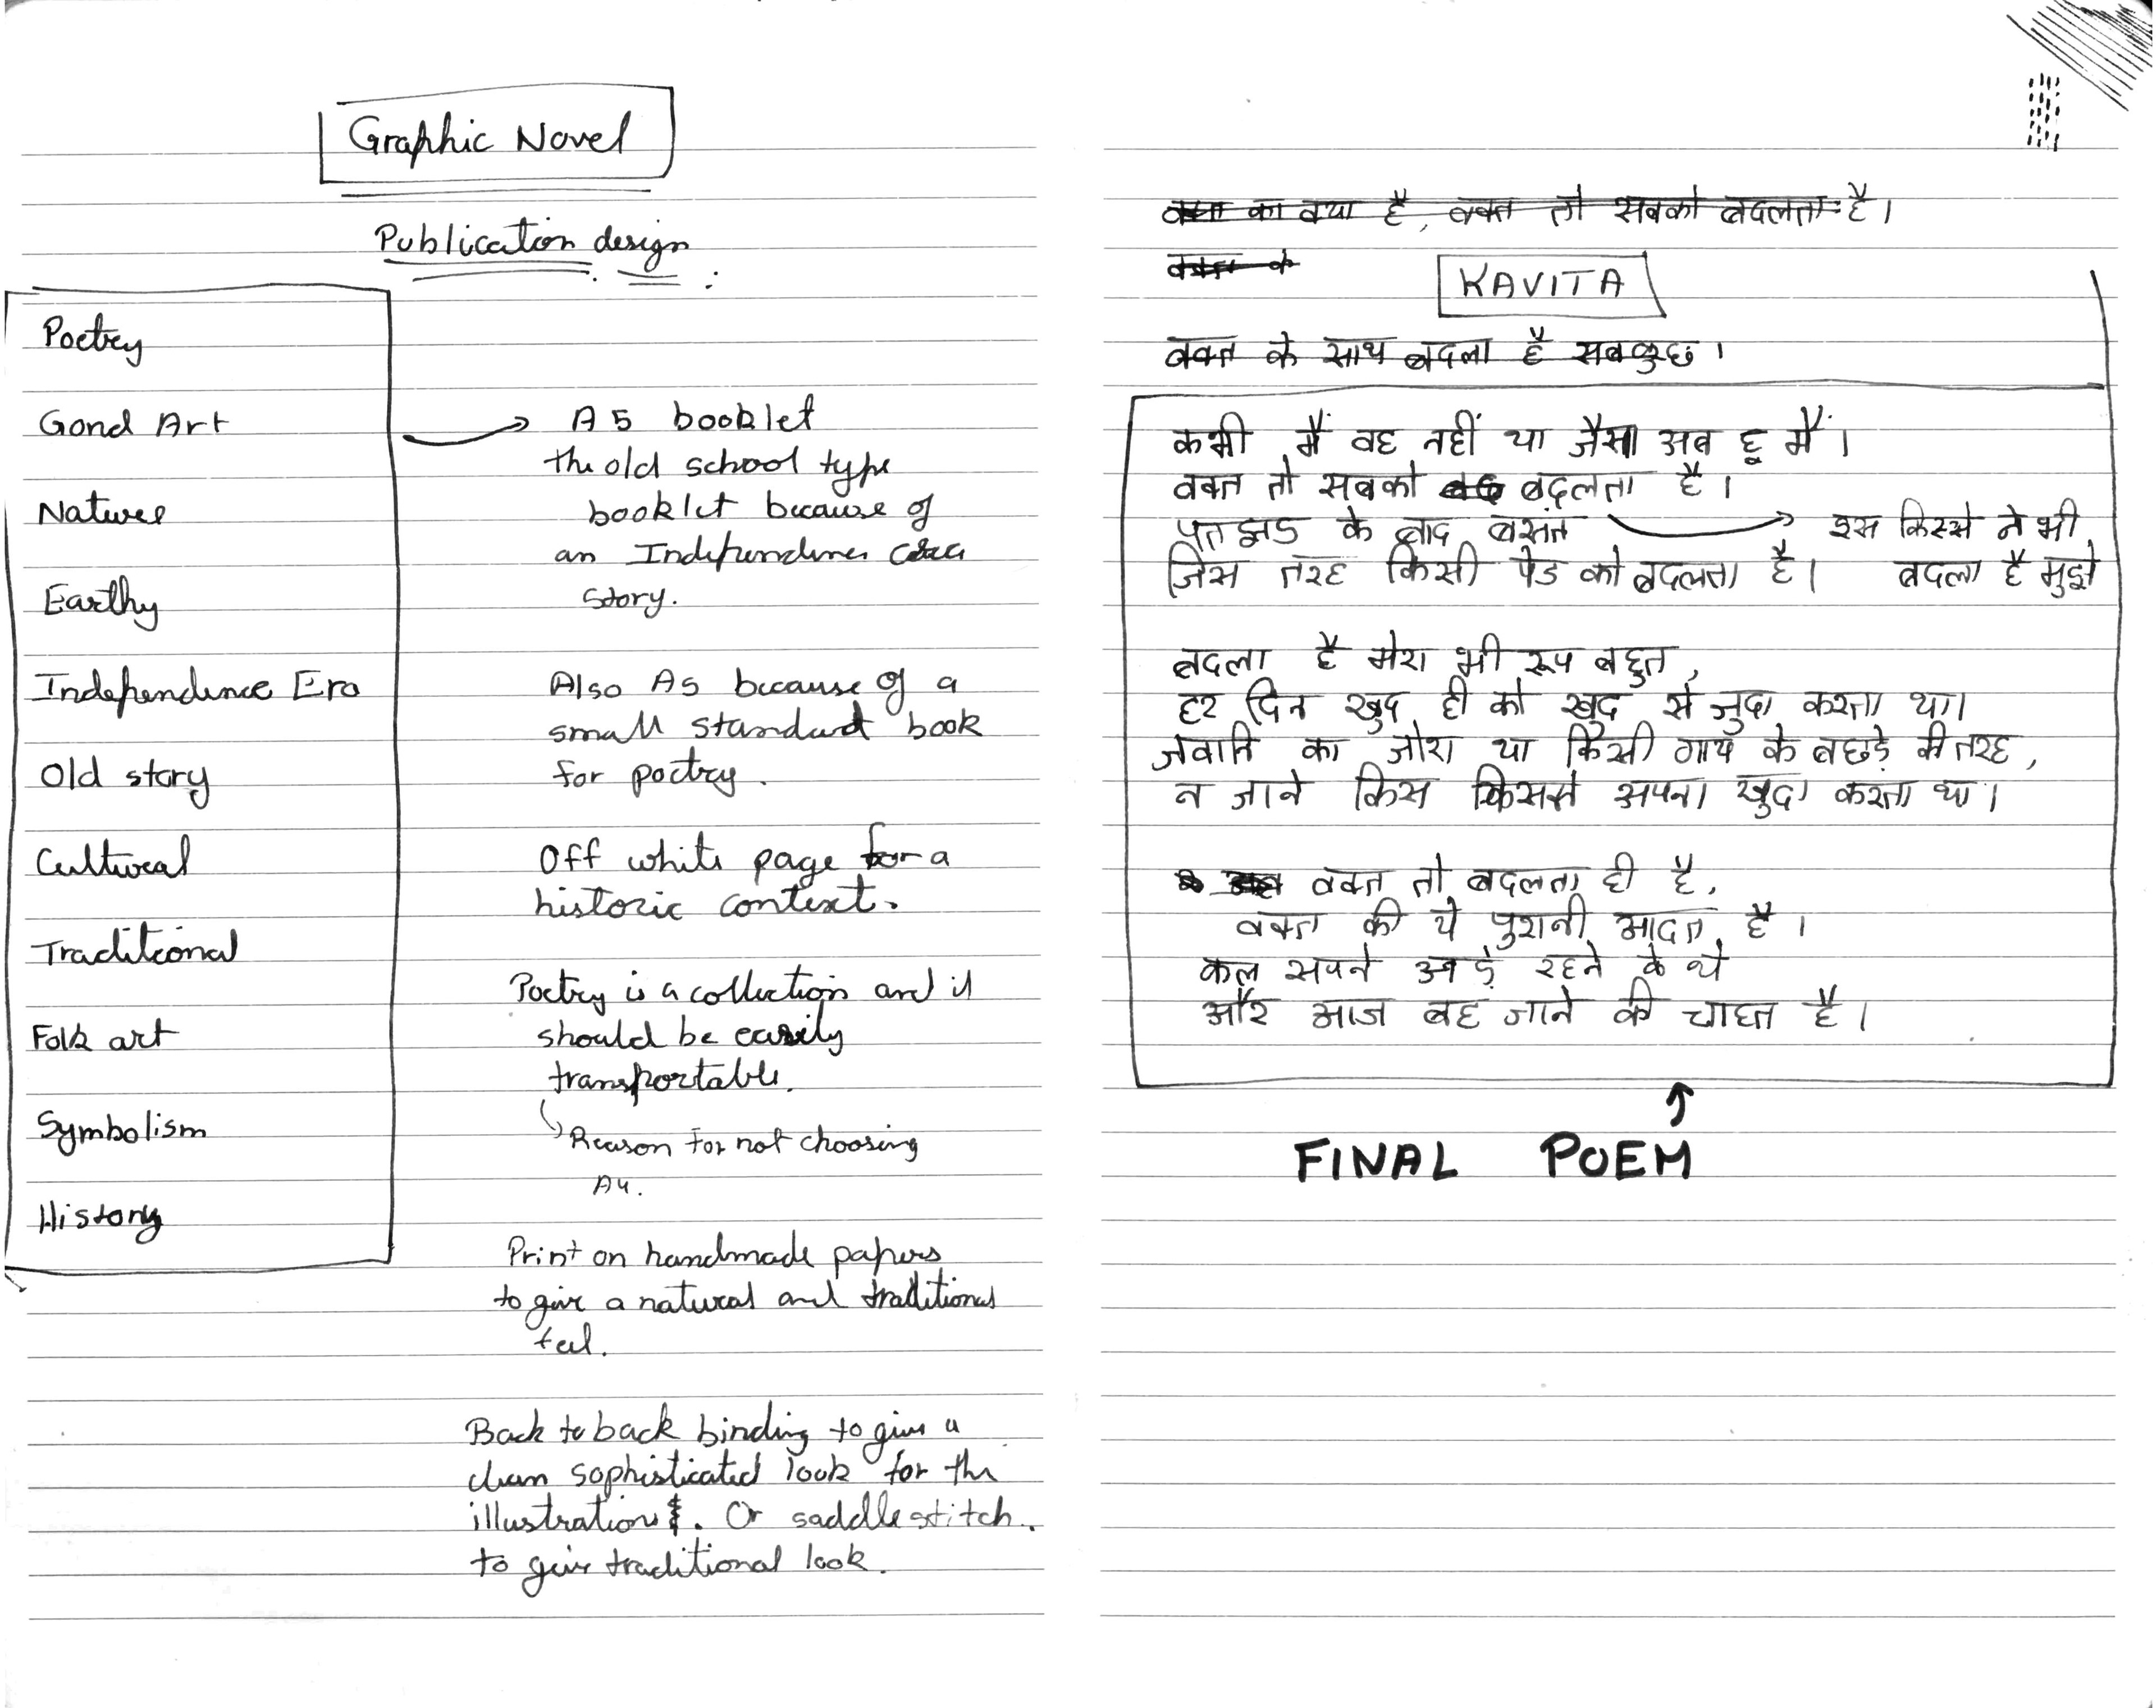 Graphic Novel
Publication design
Poetry
Gond Art
Nature
Earthy
Independence Era
Old story
Cultural
Traditional
Folk art
Symbolism
History
A5 booklet
the old school type
booklet because of
an Independence
story.
Also A5 because of a
small standard book
for poetry.
Off white page for a
historic context.
Poetry is a collection and it
should be easily
transportable.
Reason for not choosing
A4.
Print on handmade papers
to give a natural and traditional
feel.
Back to back binding to give a
clean sophisticated look for the
illustration. Or saddle stitch.
to give traditional look.
वक्त का क्या है, वक्त तो सबको बदलता है।
वक्त के
KAVITA
वक्त के साथ बदला है सबकुछ।
कभी मैं वह नहीं था जैसा अब हू मैं।
वक्त तो सबको बदलता है।
पतझड के बाद बसंत
जिस तरह किसी पेड को बदलता है।
इस किस्से ने भी
बदला है मुझे
बदला है मेरा भी रूप बहुत,
हर दिन खुद ही को खुद से जुदा करता था।
जवानि का जोश था किसी गाय के बछड़े की तरह,
न जाने किस किससे अपना खुदा करता था।
वक्त तो बदलता ही है,
वक्त की ये पुरानी आदत है।
कल सपने अड़े रहने के थे
और आज बह जाने की चाहत है।
FINAL POEM